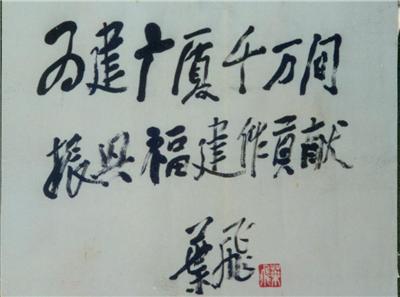 为建广厦千万间
振兴福建作貢献
葉飛